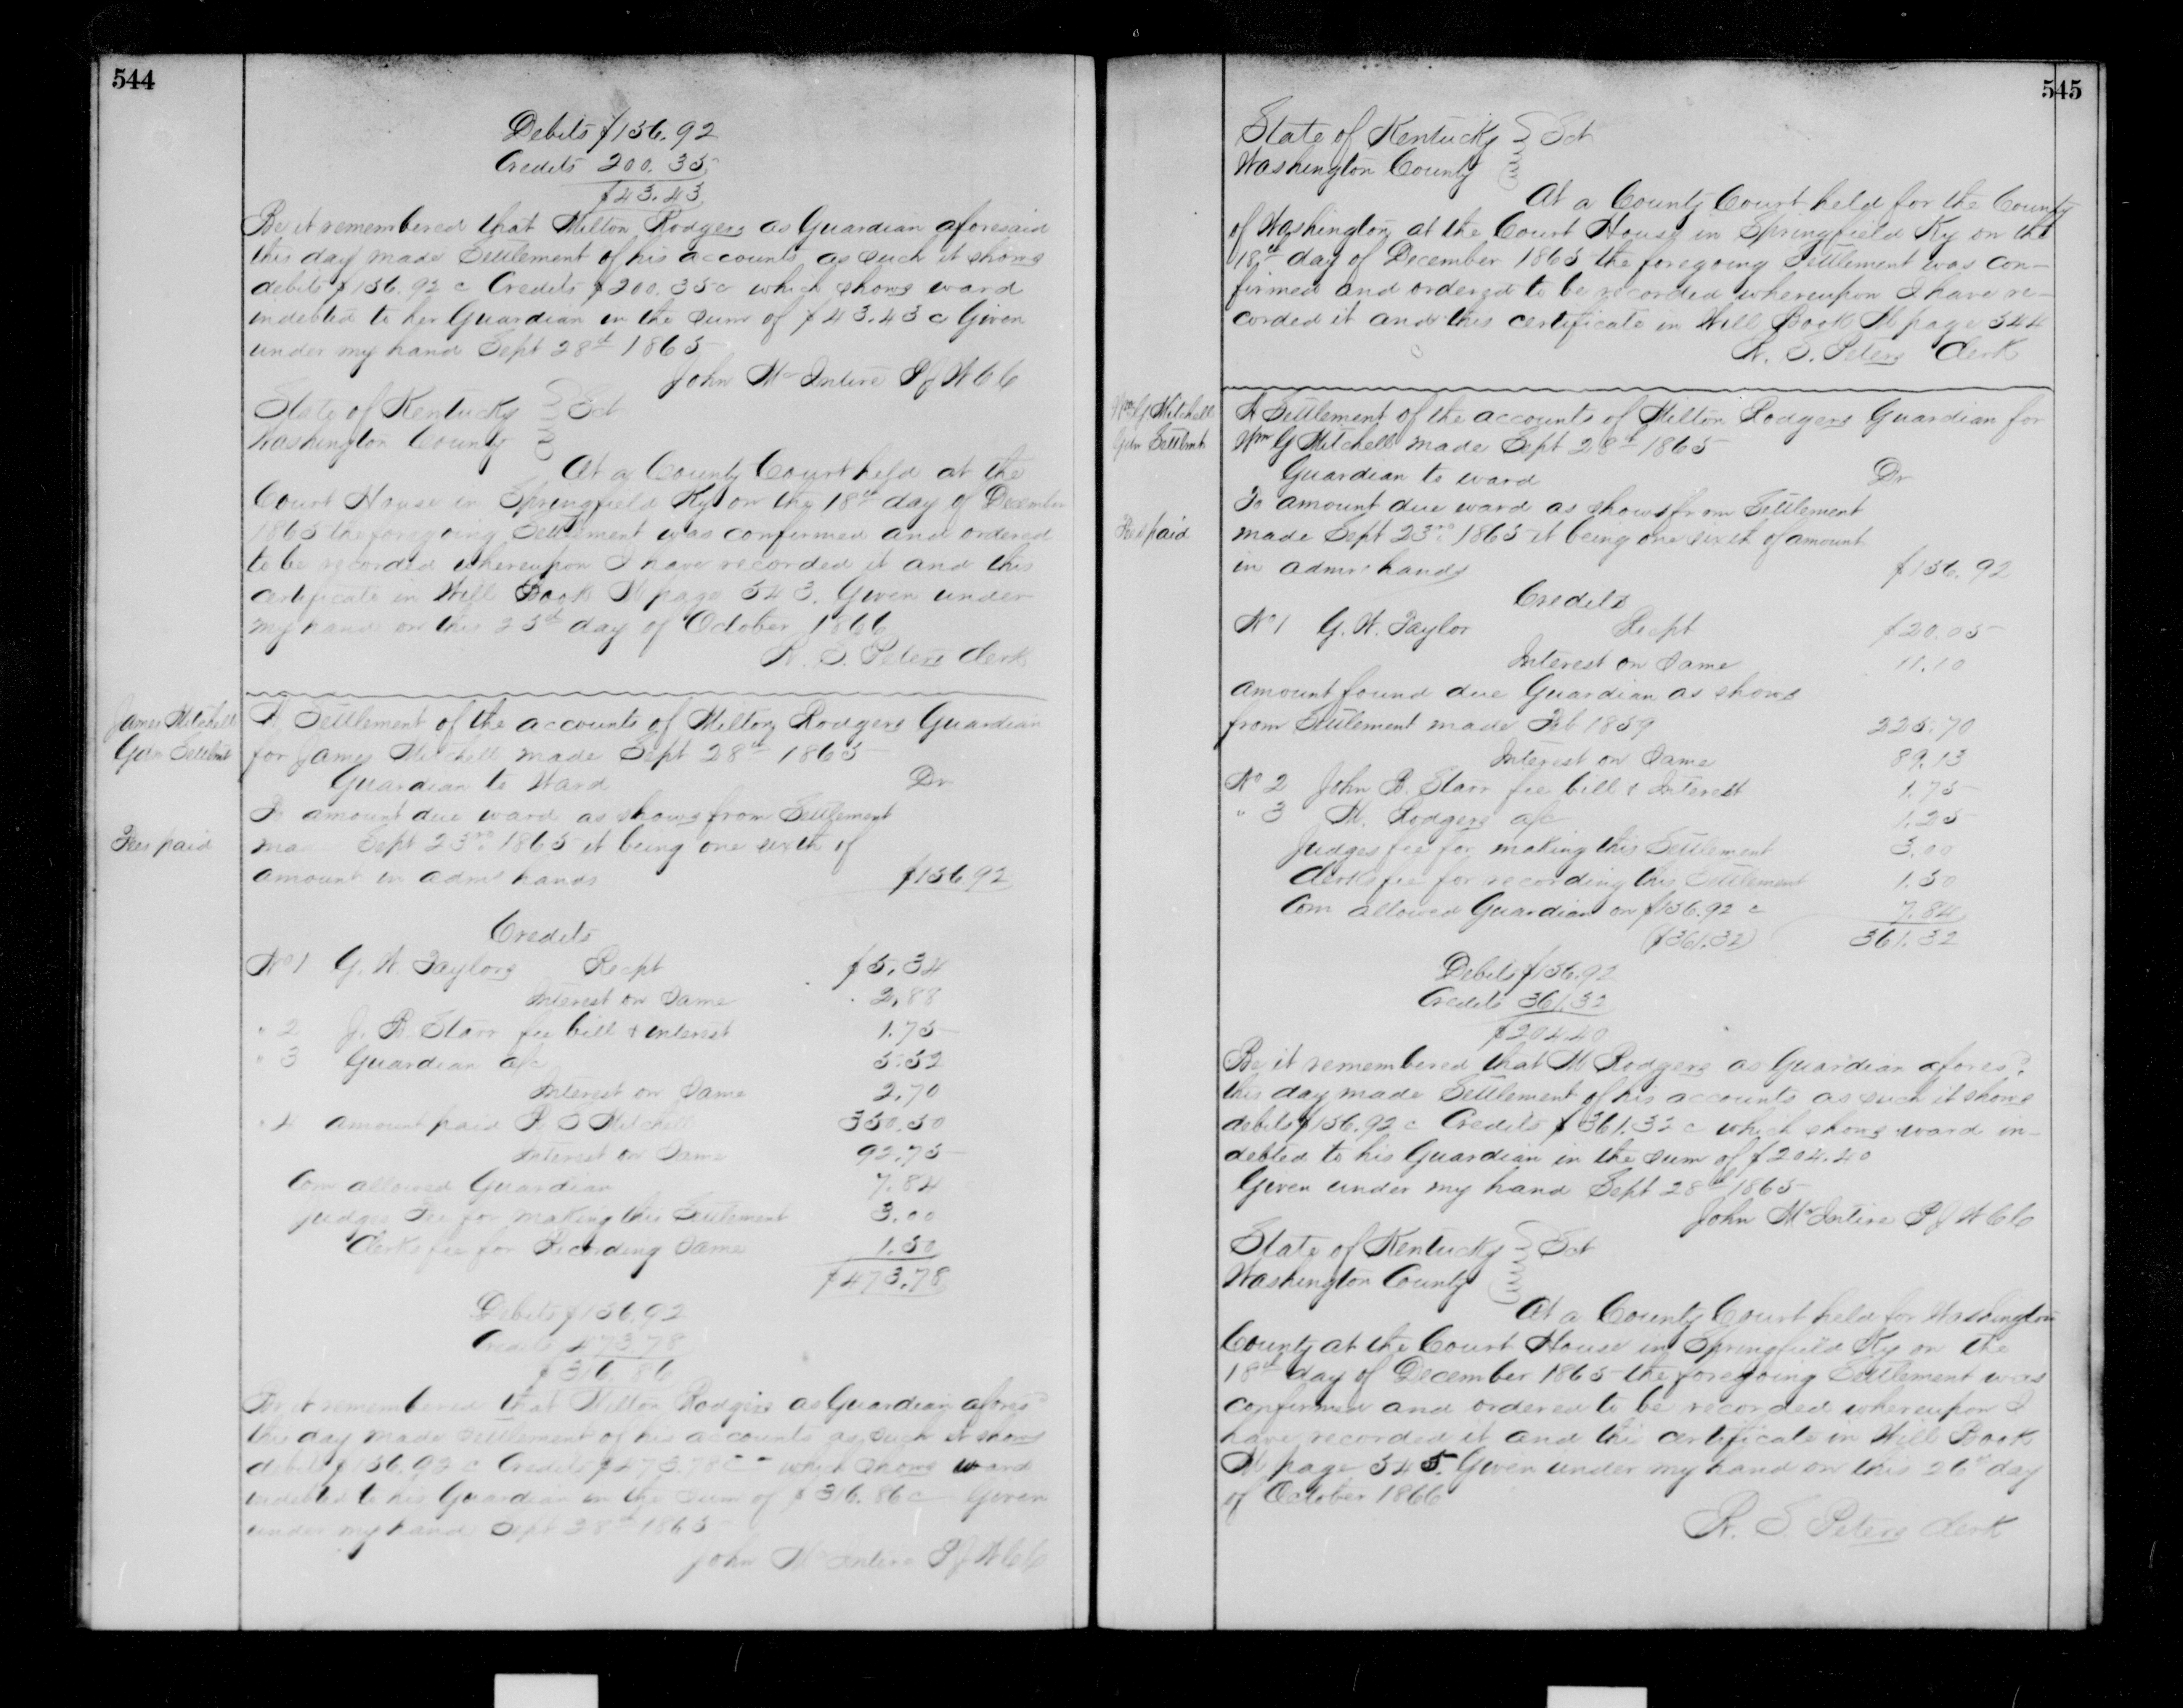 544
Debits $156.92
Credits 200.35
$43.43
Be it remembered that Milton Rodgers as Guardian aforesaid
this day made Settlement of his accounts as such it shows
debits $156.92 c Credits $200.35 c which shows ward
indebted to her Guardian in the sum of $43.43 c Given
under my hand Sept 28th 1865
John McIntire PJWCC
State of Kentucky } Sct
Washington County
At a County Court held at the
Court House in Springfield Ky on the 18th day of December
1865 the foregoing Settlement was confirmed and ordered
to be recorded whereupon I have recorded it and this
certificate in Will Book M page 543. Given under
my hand on this 25th day of October 1866
W. S. Peters Clerk
James Mitchell
Gdn Settlmt
Fees paid
A Settlement of the accounts of Milton Rodgers Guardian
for James Mitchell made Sept 28th 1865
Guardian to Ward Dr
To amount due ward as shows from Settlement
made Sept 23rd 1865 it being one sixth of
amount in admr hands $156 92
Credits
No 1 G. W. Taylors Recpt $5.34
Interest on Same 2.88
" 2 J. B. Starr fee bill & interest 1.75
" 3 Guardian a/c 5.52
Interest on Same 2.70
" 4 amount paid R S Mitchell 350.50
Interest on Same 92.75
Com allowed Guardian 7.84
Judges Fee for making this Settlement 3.00
Clerks fee for Recording Same 1.50
$473.78
Debits $156.92
Credits 473.78
$316.86
Be it remembered that Milton Rodgers as Guardian afores'd
this day made Settlement of his accounts as such it shows
debits $156.92 c Credits $473.78 c - - which shows ward
indebted to his Guardian in the sum of $316.86 c Given
under my hand Sept 28th 1865
John McIntire PJWCC
545
State of Kentucky } Sct
Washington County
At a County Court held for the County
of Washington at the Court House in Springfield Ky on the
18th day of December 1865 the foregoing Settlement was con-
firmed and ordered to be recorded whereupon I have re-
corded it and this certificate in Will Book M page 544
W. S. Peters Clerk
Wm G Mitchell
Gdn Settlmt
Fees paid
A Settlement of the accounts of Milton Rodgers Guardian for
Wm G Mitchell made Sept 28th 1865
Guardian to ward Dr
To amount due ward as shows from Settlement
made Sept 23rd 1865 it being one sixth of amount
in admrs hands $156.92
Credits
No 1 G. W. Taylor Recpt $20.05
Interest on Same 11.10
amount found due Guardian as shows
from Settlement made Feb 1859 225.70
Interest on Same 89.13
No 2 John B. Starr fee bill & Interest 1.75
" 3 M. Rodgers a/c 1.25
Judges fee for making this Settlement 3.00
Clerks fee for recording this Settlement 1.50
Com allowed Guardian on $156.92 c 7.84
($361.32) 361.32
Debits $156.92
Credits 361.32
$204.40
Be it remembered that M Rodgers as Guardian afores'd
this day made Settlement of his accounts as such it shows
debits $156.92 c Credits $361.32 c which shows ward in-
debted to his Guardian in the sum of $204.40
Given under my hand Sept 28th 1865
John McIntire PJWCC
State of Kentucky } Sct
Washington County
At a County Court held for Washington
County at the Court House in Springfield Ky on the
18th day of December 1865 the foregoing Settlement was
confirmed and ordered to be recorded whereupon I
have recorded it and this certificate in Will Book
M page 545. Given under my hand on this 26th day
of October 1866
W. S. Peters Clerk